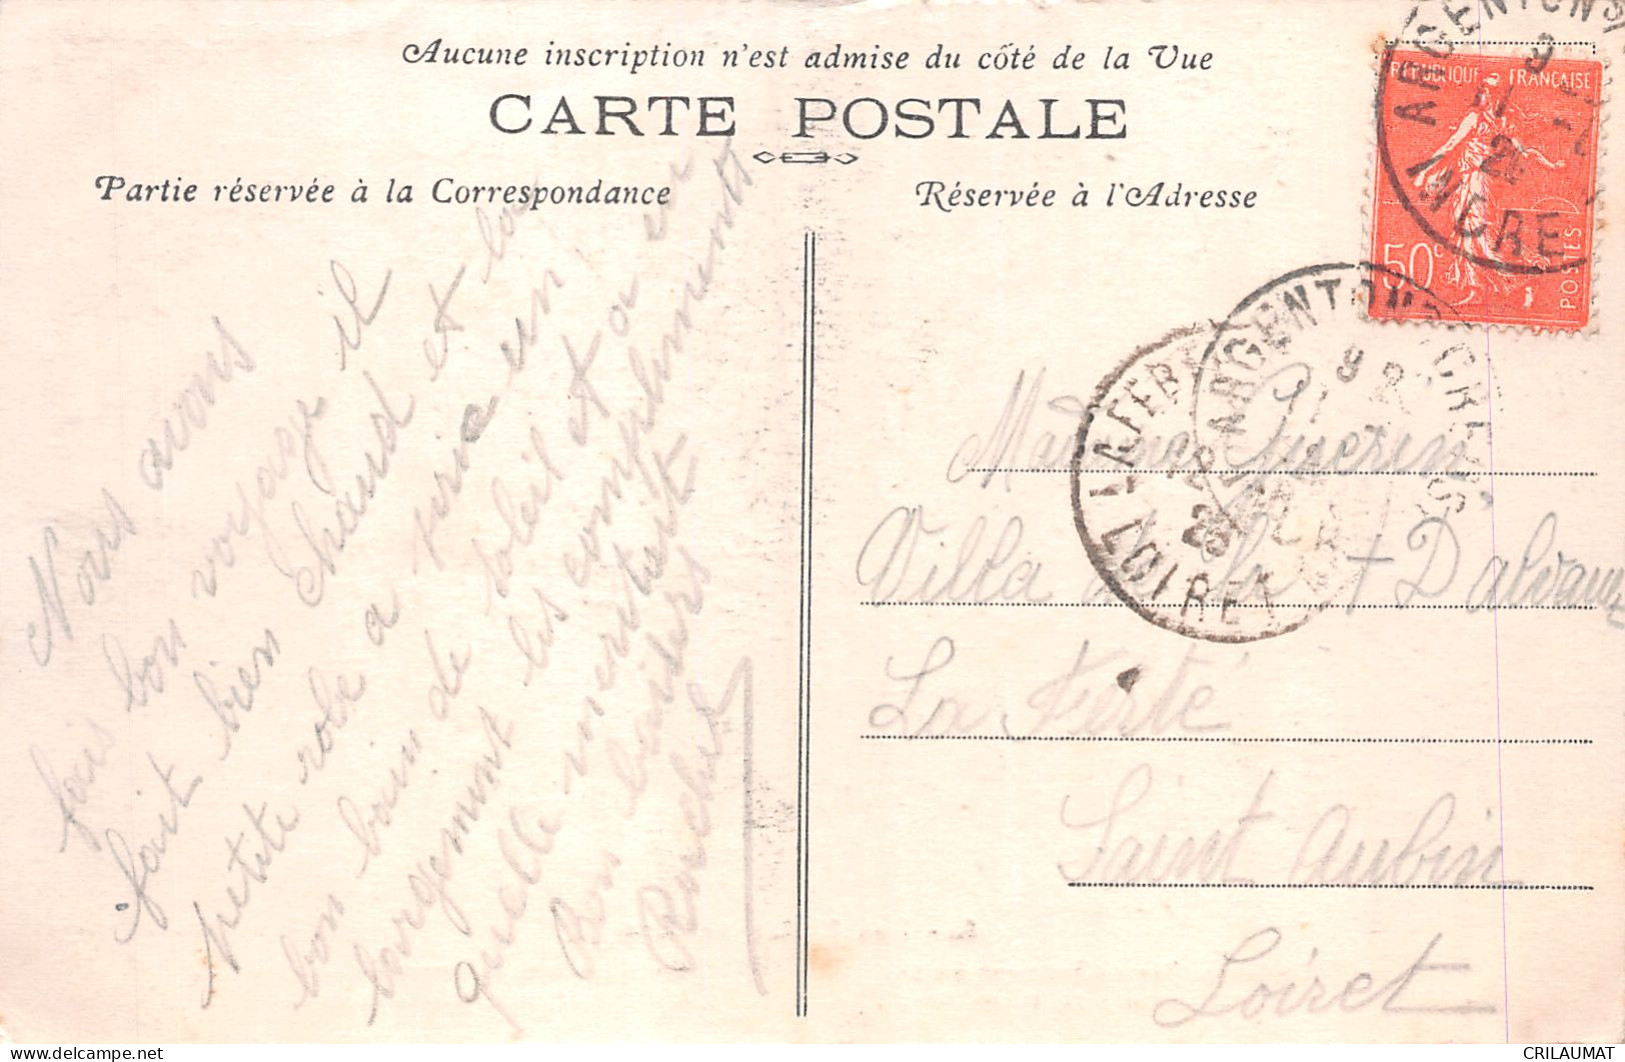 Aucune inscription n'est admise du côté de la Vue
CARTE POSTALE
Partie réservée à la Correspondance
Réservée à l'Adresse
Nous avons
fais bon voyage il
fait bien chaud et la
petite robe a servie un
bon bain de soleil et a eu
largement les compliments
quelle méritait
Bon baisers
RÉPUBLIQUE FRANÇAISE
50c
POSTES
ARGENTON S
INDRE
ARGENTON S CREUSE
LA FERTE
LOIRET
Madame Guerin
Villa de la + D
La Ferté
Saint Aubin
Loiret
CRILAUMAT